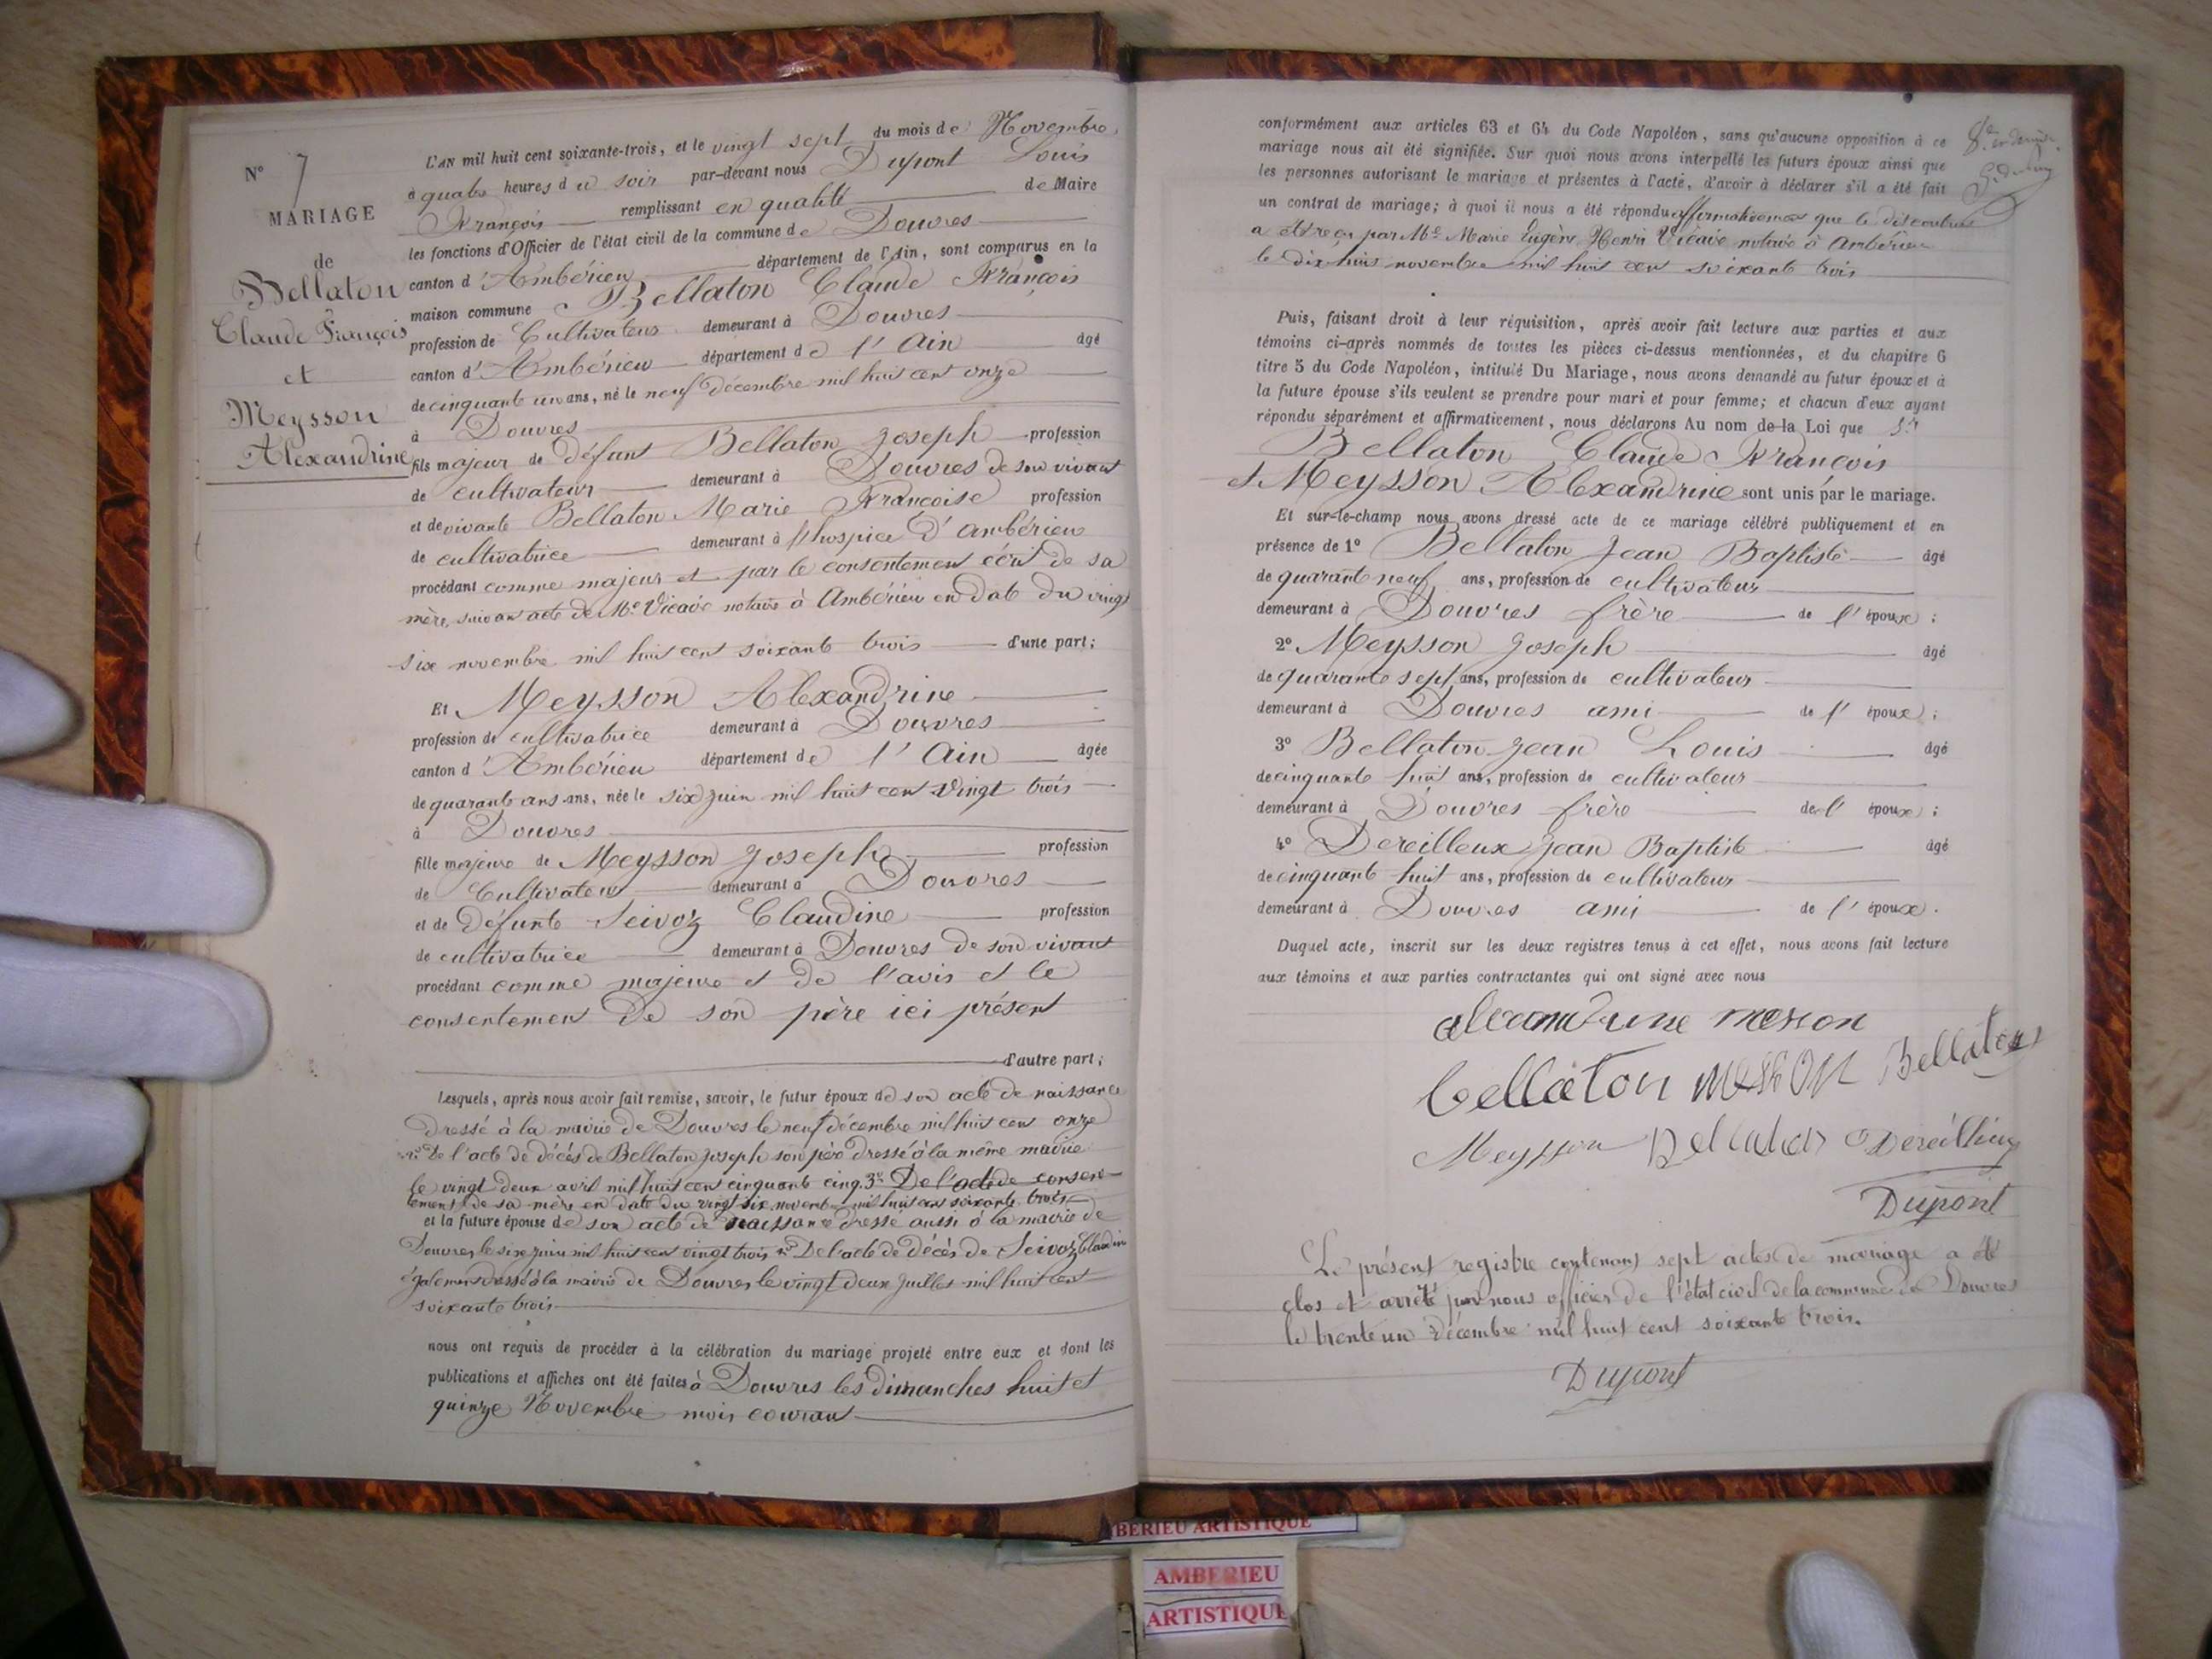 N° 7
MARIAGE
de
Bellaton
Claude François
et
Meysson
Alexandrine
L'AN mil huit cent soixante-trois, et le vingt sept du mois de Novembre,
à quatre heures du soir par-devant nous Dupont Louis
François remplissant en qualité de Maire
les fonctions d'Officier de l'état civil de la commune de Douvres
canton d'Ambérieu département de l'Ain, sont comparus en la
maison commune Bellaton Claude François
profession de Cultivateur demeurant à Douvres
canton d'Ambérieu département de l'Ain âgé
de cinquante un ans, né le neuf décembre mil huit cent onze
à Douvres
fils majeur de défunt Bellaton Joseph profession
de cultivateur demeurant à Douvres de son vivant
et de vivante Bellaton Marie Françoise profession
de cultivatrice demeurant à l'hospice d'Ambérieu
procédant comme majeur et par le consentement écrit de sa
mère, suivant acte de Me Vicaire notaire à Ambérieu en date du vingt
six novembre mil huit cent soixante trois d'une part;
Et Meysson Alexandrine
profession de cultivatrice demeurant à Douvres
canton d'Ambérieu département de l'Ain âgée
de quarante ans ans, née le six juin mil huit cent vingt trois
à Douvres
fille majeure de Meysson Joseph profession
de Cultivateur demeurant à Douvres
et de défunte Seivoz Claudine profession
de cultivatrice demeurant à Douvres de son vivant
procédant comme majeure et de l'avis et le
consentement de son père ici présent
d'autre part;
Lesquels, après nous avoir fait remise, savoir, le futur époux de son acte de naissance
dressé à la mairie de Douvres le neuf décembre mil huit cent onze
2° De l'acte de décès de Bellaton Joseph son père dressé à la même mairie
le vingt deux avril mil huit cent cinquante cinq 3° De l'acte de consen-
tement de sa mère en date du vingt six novembre mil huit cent soixante trois
et la future épouse de son acte de naissance dressé aussi à la mairie de
Douvres le six juin mil huit cent vingt trois 2° De l'acte de décès de Seivoz Claudine
également dressé à la mairie de Douvres le vingt deux juillet mil huit cent
soixante trois
nous ont requis de procéder à la célébration du mariage projeté entre eux et dont les
publications et affiches ont été faites à Douvres les dimanches huit et
quinze Novembre mois courant
conformément aux articles 63 et 64 du Code Napoléon, sans qu'aucune opposition à ce
mariage nous ait été signifiée. Sur quoi nous avons interpellé les futurs époux ainsi que
les personnes autorisant le mariage et présentes à l'acte, d'avoir à déclarer s'il a été fait
un contrat de mariage; à quoi il nous a été répondu affirmativement que le dit contrat
a été reçu par Me Marie Eugène Henri Vicaire notaire à Ambérieu
le dix huit novembre mil huit cent soixante trois
Puis, faisant droit à leur réquisition, après avoir fait lecture aux parties et aux
témoins ci-après nommés de toutes les pièces ci-dessus mentionnées, et du chapitre 6
titre 5 du Code Napoléon, intitulé Du Mariage, nous avons demandé au futur époux et à
la future épouse s'ils veulent se prendre pour mari et pour femme; et chacun d'eux ayant
répondu séparément et affirmativement, nous déclarons Au nom de la Loi que
Bellaton Claude François
et Meysson Alexandrine sont unis par le mariage.
Et sur-le-champ nous avons dressé acte de ce mariage célébré publiquement et en
présence de 1° Bellaton Jean Baptiste âgé
de quarante neuf ans, profession de cultivateur
demeurant à Douvres frère de l'époux;
2° Meysson Joseph âgé
de quarante sept ans, profession de cultivateur
demeurant à Douvres ami de l'époux;
3° Bellaton Jean Louis âgé
de cinquante huit ans, profession de cultivateur
demeurant à Douvres frère de l'époux;
4° Dereilleux Jean Baptiste âgé
de cinquante huit ans, profession de cultivateur
demeurant à Douvres ami de l'époux.
Duquel acte, inscrit sur les deux registres tenus à cet effet, nous avons fait lecture
aux témoins et aux parties contractantes qui ont signé avec nous
Bellaton
Meysson
Dupont
Le présent registre contenant sept actes de mariage a été
clos et arrêté par nous officier de l'état civil de la commune de Douvres
le trente un décembre mil huit cent soixante trois.
Dupont
BERIEU ARTISTIQUE
AMBERIEU
ARTISTIQUE